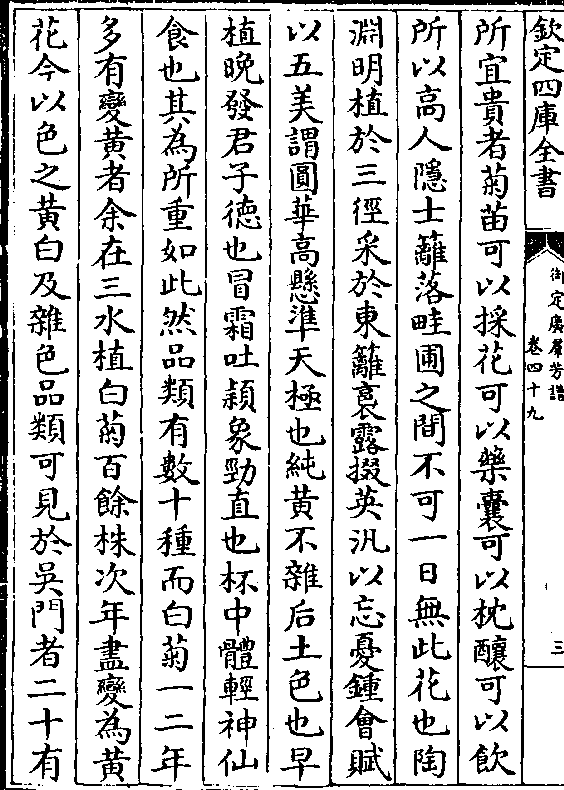 欽定四庫全書
御定廣羣芳譜
卷四十九
三
所宜貴者菊苗可以採花可以藥囊可以枕釀可以飲
所以高人隱士籬落畦圃之間不可一日無此花也陶
淵明植於三徑采於東籬裛露掇英汎以忘憂鍾會賦
以五美謂圓華高懸準天極也純黄不雜后土色也早
植晚發君子德也冒霜吐穎象勁直也杯中體輕神仙
食也其為所重如此然品類有數十種而白菊一二年
多有變黄者余在三水植白菊百餘株次年盡變為黄
花今以色之黄白及雜色品類可見於吳門者二十有